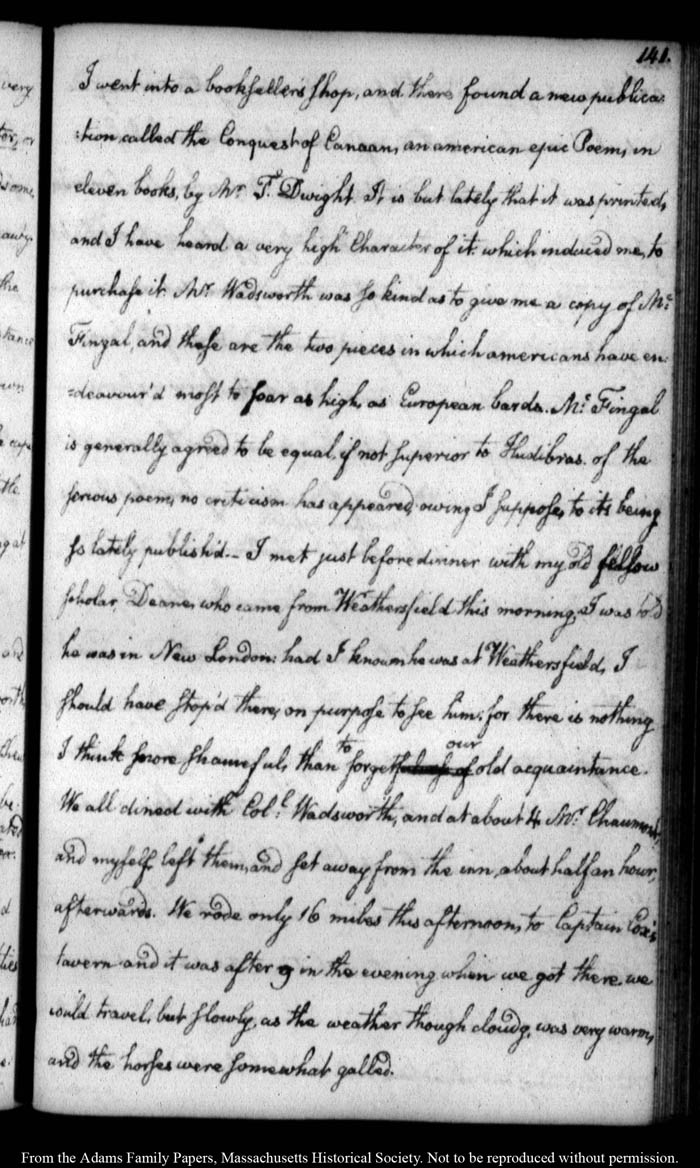 141.
I went into a booksellers shop, and there found a new publica:
:tion called the Conquest of Canaan, an american epic Poem, in
eleven books, by Mr. T. Dwight. It is but lately that it was printed,
and I have heard a very high Character of it: which induced me, to
purchase it. Mr. Wadsworth was so kind as to give me a copy of Mc.
Fingal, and these are the two pieces in which americans have en:
:deavour'd most to soar as high, as European bards. Mc. Fingal
is generally agreed to be equal, if not superior to Hudibras. of the
serious poem, no criticism has appeared, owing I suppose, to its being
so lately publish'd.— I met just before dinner with my old fellow
scholar, Deane, who came from Weathersfield this morning, I was told
he was in New London: had I known he was at Weathersfield, I
should have stop'd there, on purpose to see him: for there is nothing
I think more shameful, than to forget our old acquaintance.
We all dined with Coll. Wadsworth, and at about 4 Mr. Chaumont,
and myself, left them, and set away from the inn, about half an hour,
afterwards. We rode only 16 miles this afternoon, to Captain Cox's
tavern and it was after 9 in the evening when we got there. we
could travel, but slowly, as the weather though cloudy, was very warm,
and the horses were somewhat galled.
very
the
own
From the Adams Family Papers, Massachusetts Historical Society. Not to be reproduced without permission.